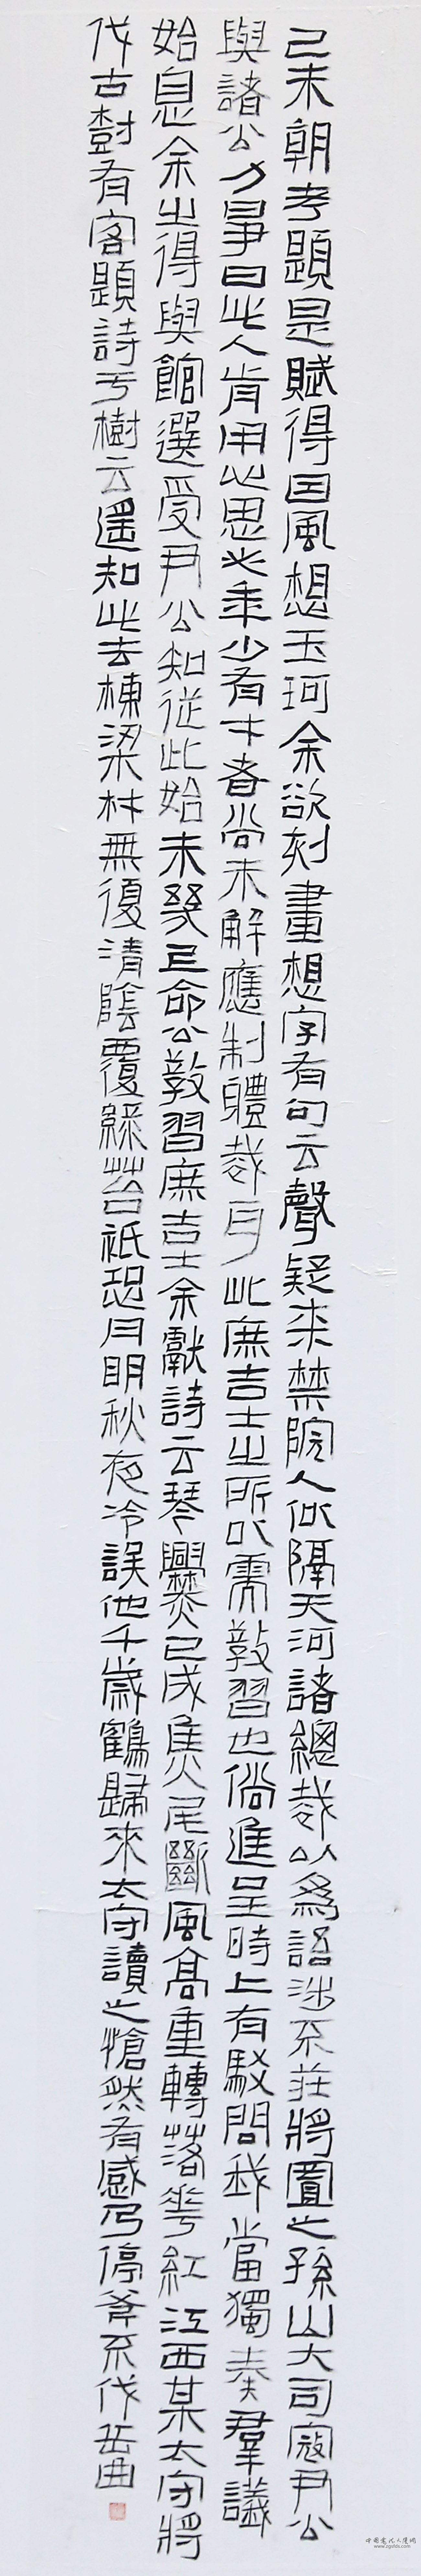 己未朝考題是賦得因風想玉珂余欲刻畫想字有句云聲疑來禁院人似隔天河諸總裁以為語涉不莊將置之孫山大司寇尹公
與諸公力爭曰此人肯用心思必年少有才者尚未解應制體裁耳此庶吉士之所以需教習也倘進呈時上有駁問我當獨奏群議
始息余之得與館選受尹公知從此始未幾上命公教習庶吉士余獻詩云琴爨已成焦尾斷風高重轉落花紅江西某太守將
伐古樹有客題詩于樹云遙知此去棟梁材無復清陰覆綠苔袛恐月明秋夜冷誤他千歲鶴歸來太守讀之愴然有感乃停斧不伐岳曲